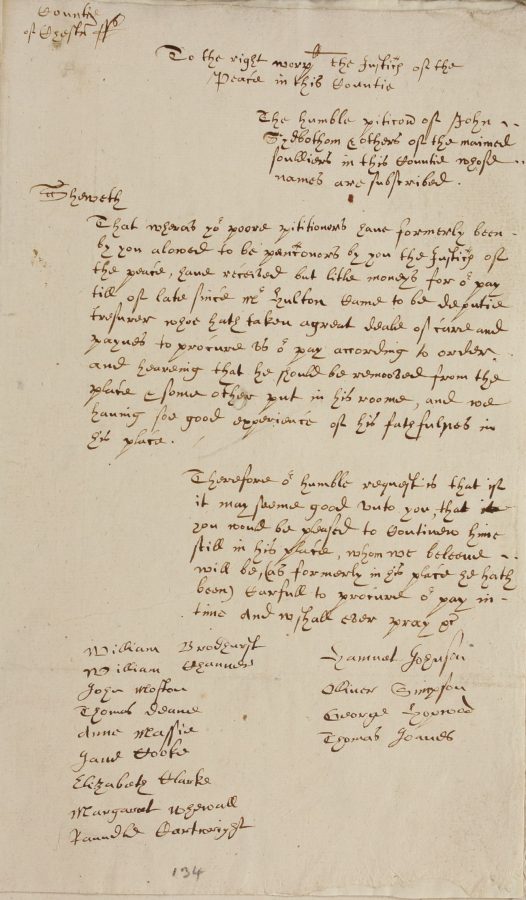 Countie
of Chester ss
To the right worpll the Justices of the
Peace in this Countie
The humble peticon of John
Sydbothom & others of the maimed
soulliers in this Countie whose
names are subscribed.
Sheweth
That wheras yor poore pititioners have formerly been
by you alowed to be pencionors by you the Justices of
the peace, have received but litle moneys for or pay
till of late since Mr Hulton Came to be deputie
tresurer whoe hath taken agreat deale of care and
paynes to procure us or pay according to order,
and heareing that he should be remooved from the
place & some other put in his roome, and we
having soe good experience of his fathfulnes in
his place.
Therefore or humble request is that if
it may seeme good unto you, that
you would be pleased to Continew hime
still in his place, whom we beleeve
will be, (as formerly in his place he hath
been) Carfull to procure or pay in
time And wshall ever pray &c
William Brodhurst
William Channer
John Moston
Thomas Deane
Anne Massie
Jane Cooke
Elizabeth Clarke
Margaret Whewall
Raundle Cartwright
Samuel Johnson
Olliver Simpson
George Hopwood
Thomas Joanes
134